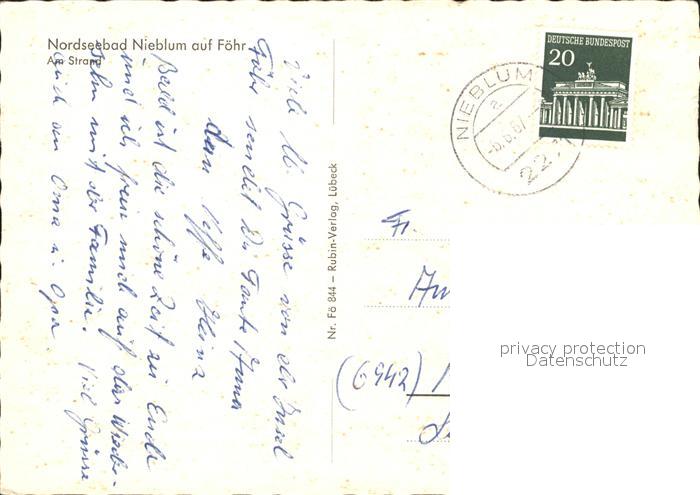 Nordseebad Nieblum auf Föhr
Am Strand
Viele lb. Grüsse von der Insel
Föhr sendet Dir Tante Anna
Heinz
Bald ist die schöne Zeit zu Ende
und ich freu mich auf das Wieder-
sehn mit der Familie. Viel Grüsse
auch an Oma u. Opa.
Nr. Fö 844 – Rubin-Verlag, Lübeck
DEUTSCHE BUNDESPOST
20
NIEBLUM
a
-6.6.67
22
Fr.
(6942)
privacy protection
Datenschutz